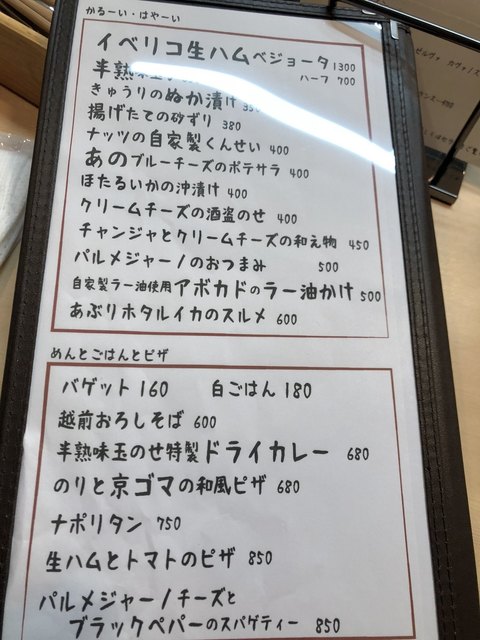 かるーい・はやーい
イベリコ生ハムベジョータ1300
ハーフ 700
半熟味玉
きゅうりのぬか漬け 350
揚げたての砂ずり 380
ナッツの自家製くんせい 400
あのブルーチーズのポテサラ 400
ほたるいかの沖漬け 400
クリームチーズの酒盗のせ 400
チャンジャとクリームチーズの和え物 450
パルメジャーノのおつまみ 500
自家製ラー油使用アボカドのラー油かけ 500
あぶりホタルイカのスルメ 600
めんとごはんとピザ
バゲット 160 白ごはん 180
越前おろしそば 600
半熟味玉のせ特製ドライカレー 680
のりと京ゴマの和風ピザ 680
ナポリタン 750
生ハムとトマトのピザ 850
パルメジャーノチーズと
ブラックペパーのスパゲティー 850